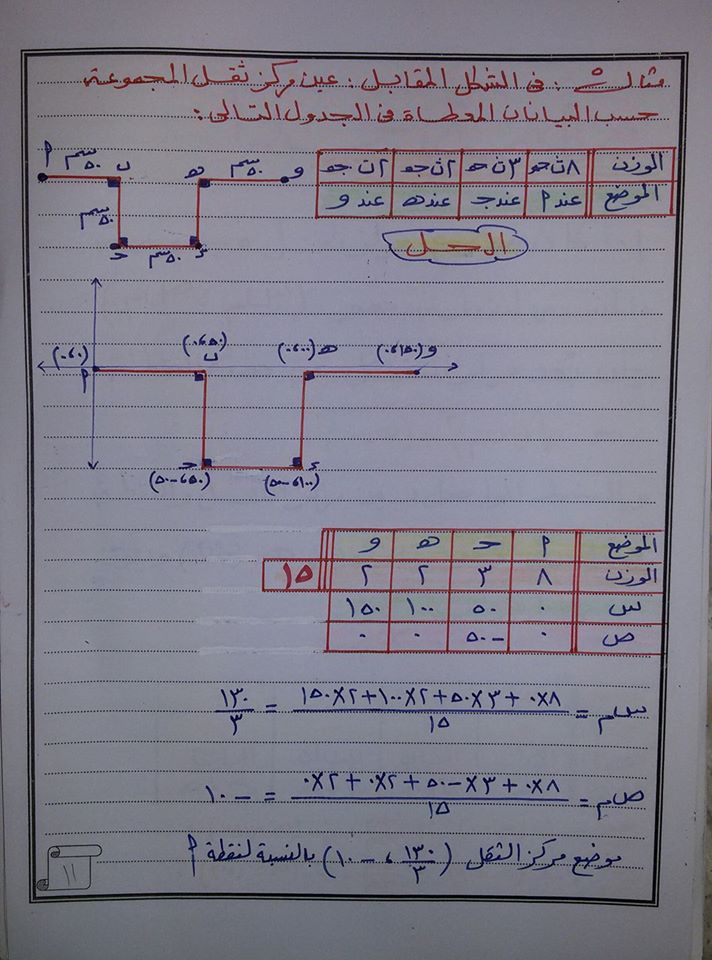 مثال ٥ : فى الشكل المقابل : عين مركز ثقل المجموعة
حسب البيانات المعطاة فى الجدول التالى :
الوزن ٨ ث جم ٣ ث جم ٢ ث جم ٢ ث جم
الموضع عند م عند جـ عند هـ عند و
م ٥٠ سم ب هـ ٥٠ سم و
٥٠ سم
حـ ٥٠ سم ء
الحل
(٠،٠) (٥٠،٠) (١٠٠،٠) هـ (١٥٠،٠) و
م ب
حـ ء
(٥٠،-٥٠) (١٠٠،-٥٠)
الموضع م حـ هـ و
الوزن ٨ ٣ ٢ ٢ ١٥
س ٠ ٥٠ ١٠٠ ١٥٠
ص ٠ -٥٠ ٠ ٠
سم = (٨×٠ + ٣×٥٠ + ٢×١٠٠ + ٢×١٥٠)/١٥ = ١٣٠/٣
صم = (٨×٠ + ٣×-٥٠ + ٢×٠ + ٢×٠)/١٥ = -١٠
موضع مركز الثقل (١٣٠/٣ ، -١٠) بالنسبة لنقطة م
١١